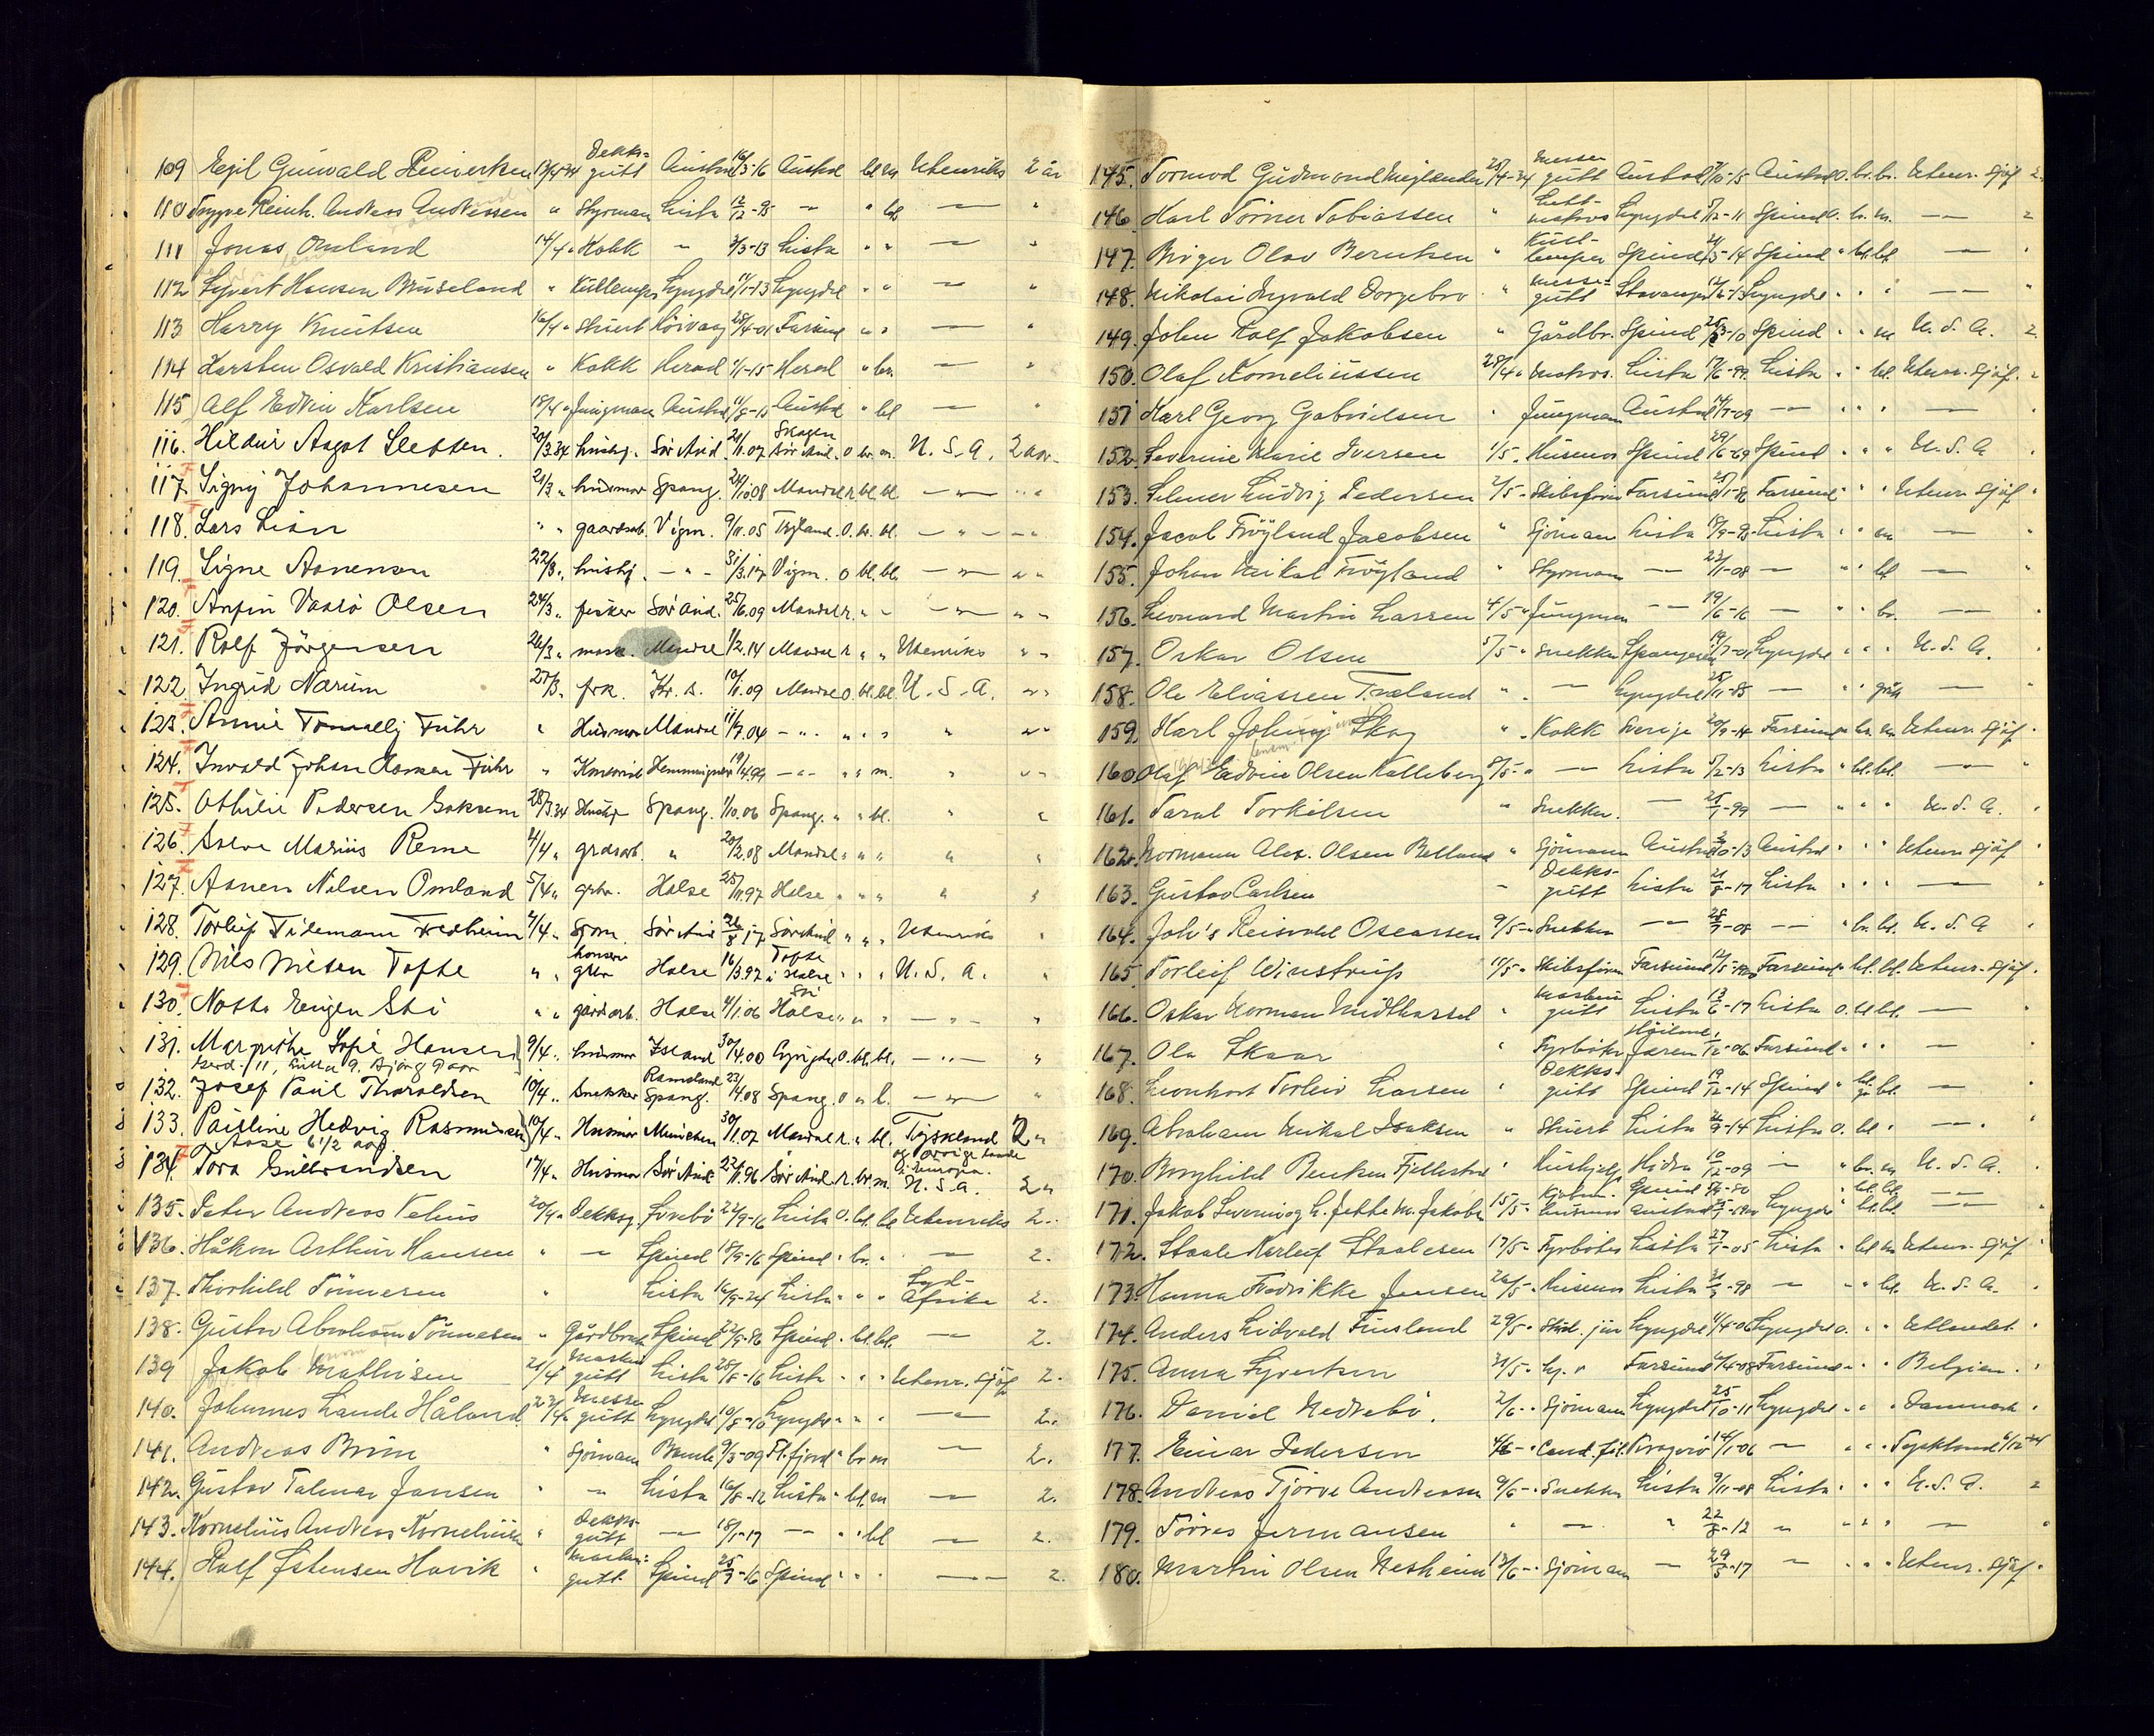 109 Egil Gunvald Reiersen 13/4 34 Dekks=gutt Austad 16/3-16 Austad bl m Utenriks 2 år
110 Trygve Reinh. Andreas Andreassen " Styrman Lista 12/12-95 — " bl. — "
111 Jonas Omland 14/4 " Kokk " 3/3-13 Lista " " — "
112 Syvert Hansen Bruseland " Kullemper Lyngdal 14/1-13 Lyngdal " " — "
113 Harry Knutsen 16/4 " Stuert Höivaag 28/4-01 Farsund " " — "
114 Karsten Osvald Kristiansen " Kokk Herad 4/1-15 Herad " br. — "
115 Alf Edvin Karlsen 18/4 " Jungman Austad 11/8-15 Austad " bl — "
116. Hildur Aagot Sletten. 20/3.34 hushj. Sör Aud. 21/11.07 Skogen Sör Aud. O br. m. U. S. A. 2 aar.
117. Signy Johannesen 21/3 " husmor Spang. 24/10 08 Mandal r. bl. bl. — " — " "
118. Lars Lian " " gaardsarb. Vigm. 9/11.05 Tryland. O. br. bl. — " — " —
119. Signe Aanensen 22/3 " hushj. — " — 31/3.17 Vigm. O bl. bl. — " — " "
120. Arfin Vaasö Olsen 24/3 " fisker Sör Aud. 25/6.09 Mandal r. " " — " — " "
121. Rolf Jörgensen 26/3 " mask. Mandal 1/2.14 Mandal r " " Utenriks " "
122 Ingrid Narum 27/3 " frk. Kr. S. 10/11.09 Mandal O. bl. bl. U. S. A. " "
123. Annie Führ " Husmor Mandal 11/7.04 — " — " " " " " "
124. Johan Führ " 19/4.99 — " — " " m. " " "
125. Othilie Pedersen 28/3 34 Hushj Spang. 1/10.06 Spang. " " bl. " "
126. Salve Marius Reme 4/4 " grdsarb. " 20/2.08 Mandal " " " " "
127. Aanen Nilsen Omland 5/4 " grbr. Halse 25/11.97 Halse " " " " "
128. Torleif Tidemann Fredheim 7/4 " Sjöm. Sör Aud 26/8 17 Sör Aud " " " Utenriks "
129. Nils Nilsen Tofte " " grbr Halse 16/3.92 Tofte i Halse " " " U. S. A. "
130. Eugen Ski " " gårdarb. Halse 4/1.06 Ski Halse " " " — " — "
131. Margrethe Sofie Hansen 9/4 " husmor Island 30/4.00 Lyngdal O. bl. bl. — " — "
Gerd. 11, 9. Bjorg 9 aar
132. Josef Paul Tharaldsen 10/4 " Snekker Ramsland Spang. 23/4.08 Spang. O " l. — " — "
133. Pauline Hedvig Rasmussen 10/4 " Husmor München 30/1.07 Mandal r. " bl. Tyskland 2 "
Aase 6 1/2 aar og övrige lande i Europa.
134. Tora Gulbrandsen 17/4 " Husmor Sör Aud 22/11.96 Sör Aud. r. br. m. U. S. A. 2 "
135. Peter Andreas Velius 20/4 " Dekksg. 22/9-16 Lista O. bl. bl Utenriks 2.
136. Håkon Arthur Hansen " — Spind 18/9-16 Spind " br. " — 2.
137. Thorhild Tönnesen " Lista 16/9-24 Lista " " " Syd-Afrika 2.
138. Gustav Abraham Tönnesen " Gårdbruk Spind 22/8-86 Spind " bl. bl. — 2.
139 Jakob Mathisen 21/4 Maskingutt Lista 25/8-16 Lista " " " Utenr. sjöf 2.
140. Johannes Lande Håland 23/4 " Messegutt Lyngdal 10/8-16 Lyngdal " " " — 2.
141. Andreas Brun " Sjöman 9/3-09 Fl. fjord " br m — 2.
142. Gustav Talmar Jansen " " Lista 16/8-12 Lista " bl. m — 2.
143. Kornelius Andreas Korneliussen " Dekksgutt — 18/1-17 — " " bl — 2.
144. Rolf Østensen Havik " Maskingutt Spind 25/7-16 Spind " " " — 2.
145. Tormod Gudmond Meglænder 25/4-34 Messegutt Austad 7/10-15 Austad O. br. br. Utenr. sjöf 2.
146. Karl Törner Tobiassen " Lettmatros Lyngdal 5/12-11 Spind O. br. m. — 2
147. Birger Olav Berntsen " Kullemper Spind 24/5-14 Spind " bl. bl. — "
148. Nikolai Dorgebro " Messegutt Stavanger 14/6-13 Lyngdal " " " — "
149. John Rolf Jakobsen " Gårdbr. Spind 26/3-10 Spind " " m U. S. A. 2
150. Olaf Korneliussen 28/4 " Matros. Lista 17/6-99 Lista " " bl. Utenr. sjöf. "
151 Karl Georg Gabrielsen " Jungman Austad 14/7-09 — " " " — "
152. Severine Marie Iversen 1/5 " Husmor Spind 29/6-69 Spind " " " U. S. A "
153. Selmer Ludvig Pedersen 2/5 - Skibsförer Farsund Farsund " " " Utenr. sjöf "
154. Jacob Fröyland Jacobsen " Sjöman Lista 18/9-98 Lista " " m — "
155. Johan Mikal Fröyland " Styrman — 23/11-08 — " " bl — "
156. Leonard Martin Larsen 4/5 " Jungman — 19/6-16 — " " br. — "
157. Oskar Olsen 5/5 - Snekker Spangereid 19/7-01 Lyngdal " " " U. S. A. "
158. Ole Eliassen Træland " — Lyngdal 25/11-85 — " " grå — "
159. Karl Johnny Skog " Kokk Sverige 20/9-14 Farsund " br. m Utenr. sjöf "
160. Olaf Edvin Olsen Kalleberg 8/5 - — Lista 5/2-13 Lista " bl. bl. — "
161. Taral Torkilsen " Snekker. — 25/1-99 — " " " U. S. A. "
162. Normann Alex. Olsen Belland " Sjömann Austad 3/10-13 Austad " " " Utenr. sjöf "
163. Gustav Carlsen - Dekksgutt Lista 21/8-17 Lista " " " — "
164. Joh's Reisvold Oscarsen 9/5 - Snekker — 28/7-08 — " br. bl. U. S. A "
165 Torleif Winstrup 11/5 - Skibsförer Farsund 12/5 Farsund " bl. bl. Utenr. sjöf. "
166. Oskar Norman Midthassel " Maskingutt Lista 13/6-17 Lista O. bl bl. — "
167. Ola Skaar " Fyrböter Höiland, Jæren 7/12-06 Farsund " " " — "
168. Leonhart Torleiv Larsen " Dekksgutt Spind 19/12-14 Spind " bl. — "
169. Abraham Mikal Isaksen " Stuert Lista 21/9-14 Lista O. bl. " — "
170. Borghild Berntsen Fjellestad " Hushjelp Hidra 10/12-09 — " br. m U. S. A. "
171. Jakob Severin og h. Jette M. Jakobs 15/5 - husmor Spind Austad Lyngdal " bl. bl. — "
172. Staale Karleif Staalesen 17/5 - Fyrböter Lista 27/1-05 Lista " bl m Utenr. sjöf "
173. Hanna Fredrikke Jensen 26/5 - Husmor Lista 21/3-98 — " " bl. U. S. A. "
174. Anders Lidvald Fuesland 29/5 - Stud. jur Lyngdal 4/4-06 Lyngdal O. " " Utlandet. "
175. Anna Syvertsen 31/5 - Farsund 4/4-08 Farsund " " " Belgien. "
176. Daniel Nedrebö. 2/6 - Sjömann Lyngdal 25/10-11 Lyngdal " " " Danmark "
177. Einar Pedersen 4/6 - Cand. fil. Kragerö 14/1-06 — " " " Tyskland 1/12-34
178. Andreas Tjörve Andreassen 9/6 - Snekker Lista 9/11-08 Lista " " " U. S. A. 2
179. Törres Jermansen " — " 22/8-12 " " " " — "
180. Martin Olsen Nesheim 12/6 - Sjöman — 29/3-17 " " " " Utenr. sjöf "